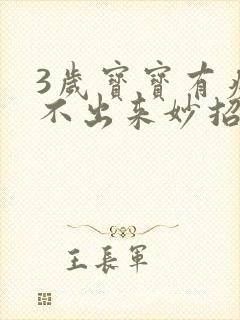 3歲寶寶有
不出来妙招
王長軍